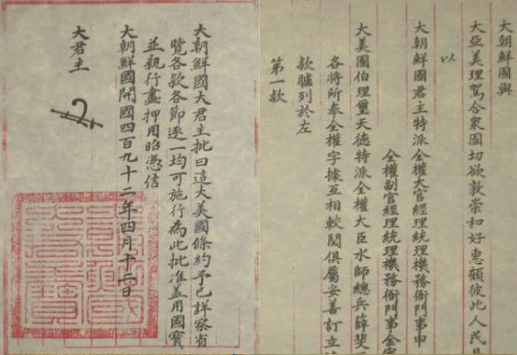 大朝鮮國與
大亞美理駕合衆國切欲敦崇和好惠顧彼此人民
以
大朝鮮國君主特派全權大官經理統理機務衙門事申
全權副官經理統理機務衙門事金
大美國伯理璽天德特派全權大臣水師總兵薛斐
各將所奉全權字據互相較閱俱屬妥善訂立
款臚列於左
第一款
大朝鮮國大君主批曰這大美國條約予已詳察省
覽各款各節逐一均可施行為此批准蓋用國寶
並親行畫押用昭憑信
大朝鮮國開國四百九十二年四月十二日
大君主